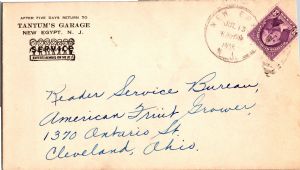 AFTER FIVE DAYS RETURN TO
TANTUM'S GARAGE
NEW EGYPT, N. J.
SERVICE
NEW EG
JUL 13
N.J.
Reader Service Bureau,
American Fruit Grower,
1370 Ontario St.
Cleveland, Ohio.